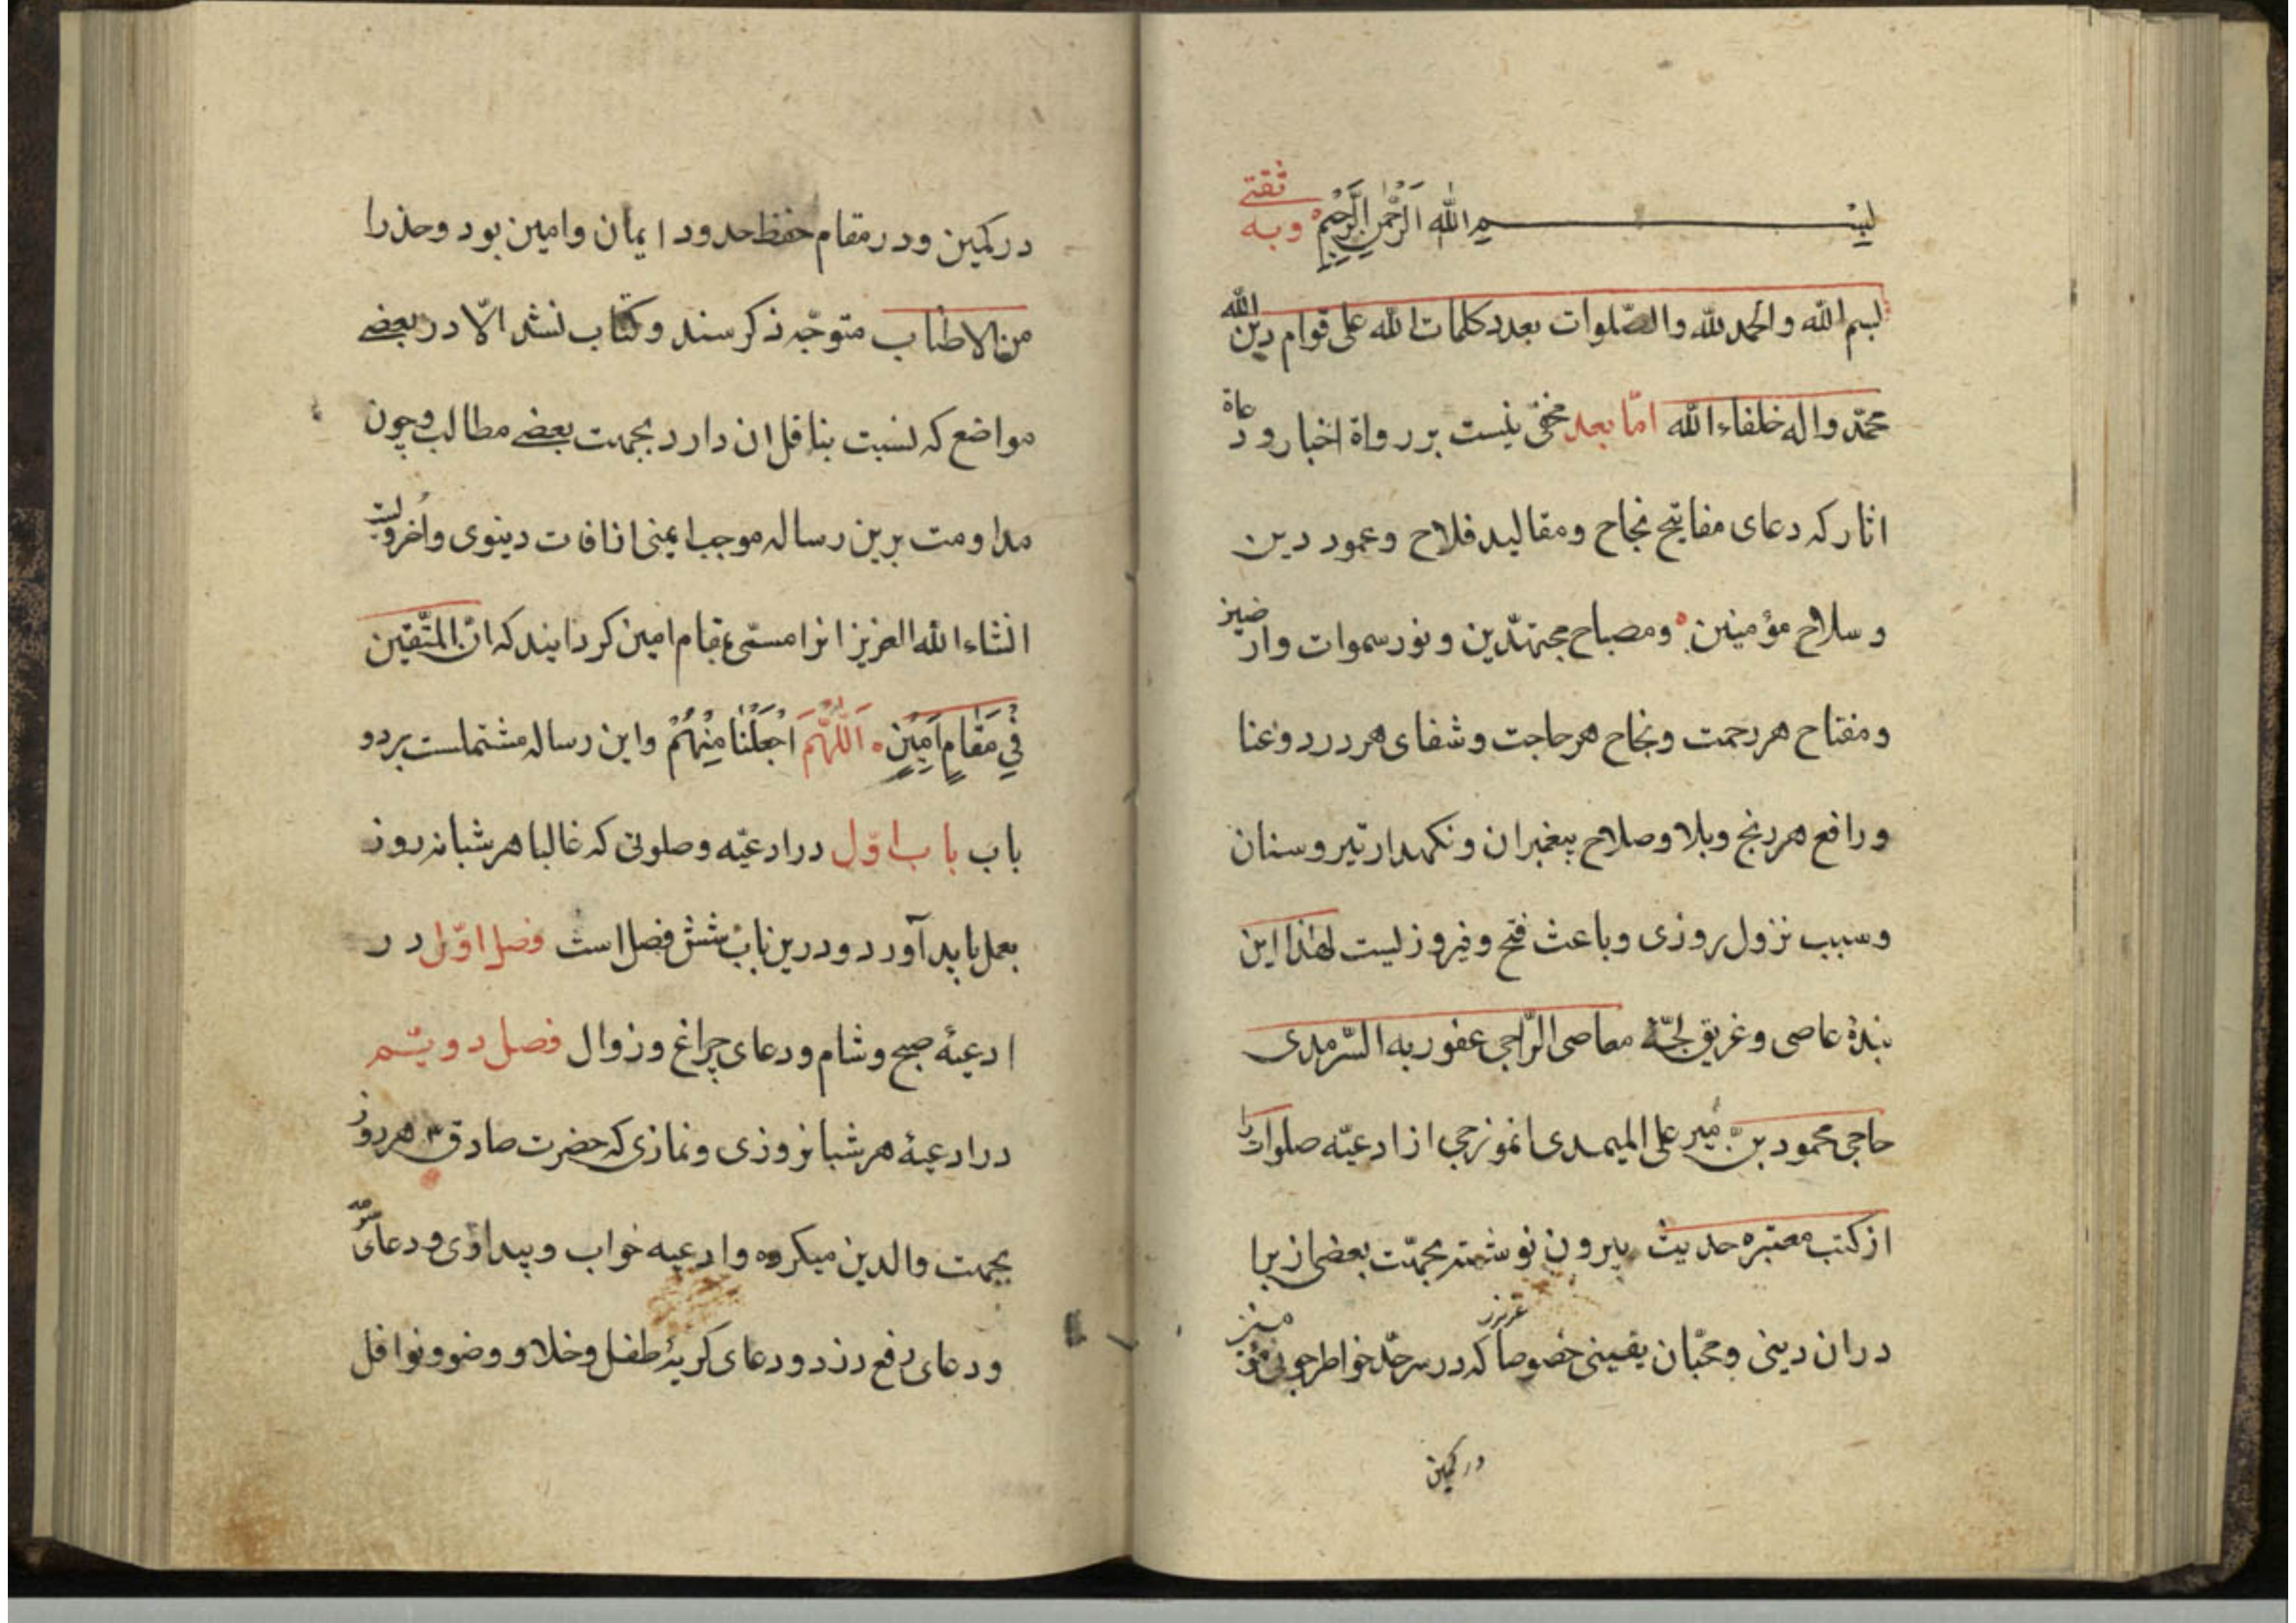 بسم الله الرحمن الرحيم وبه ثقتي
بسم الله والحمد لله والصّلوات بعدد كلمات الله على قوام دين الله
محمّد واله خلفاء الله امّا بعد مخفی نیست بر رواة اخبار و دعاة
اثار که دعای مفاتیح نجاح ومقالید فلاح وعمود دین
و سلاح مؤمنین ومصباح مجتهّدین و نور سموات وارضیز
ومفتاح هر رحمت ونجاح هر حاجت وشفای هر درد وغنا
ورافع هر رنج وبلا وصلاح پیغمبران ونکهدار تیر وسنان
وسبب نزول روزی وباعث فتح وفیروزیست لهذا این
بندهٔ عاصی وغریق لجّهٔ معاصی الرّاجی عفو ربه السّرمدی
حاجی محمود بن میر علی المیمدی انموزجی از ادعیّه صلوات را
از کتب معتبره حدیث بیرون نوشته بجهّت بعضی از برا
دران دینی ومحبّان یقینی خصوصا عزیز که در سرحدّ خواطر جوئی
در کمین
در کمین ودر مقام حفظ حدود ایمان وامین بود وحذرا
من الاطناب متوجّه ذکر سند وکتاب نشد الاّ در بعضے
مواضع که نسبت بناقل ان دارد بجهت بعضے مطالب وچون
مداومت برین رساله موجب ایمنی از افات دینوی واُخرویست
انشاء الله العزیز انرا مسمّی بمقام امین کردانیند که انّ المتّقین
فِي مَقَامٍ اَمِينٍ اَللّٰهُمَّ اجْعَلْنَا مِنْهُمْ واین رساله مشتملست بر دو
باب باب اوّل در ادعیّه وصلوتی که غالبا هر شبانه روز
بعمل باید آورد ودرین باب شش فصل است فصل اوّل در
ادعیهٔ صبح وشام ودعای چراغ وزوال فصل دویّم
در ادعیهٔ هر شبانروزی ونمازی که حضرت صادق هر روز
بجهت والدین میکرده وادعیه خواب وبیداری ودعای
ودعای دفع دزد ودعای کریهٔ طفل وخلا و وضو ونوافل